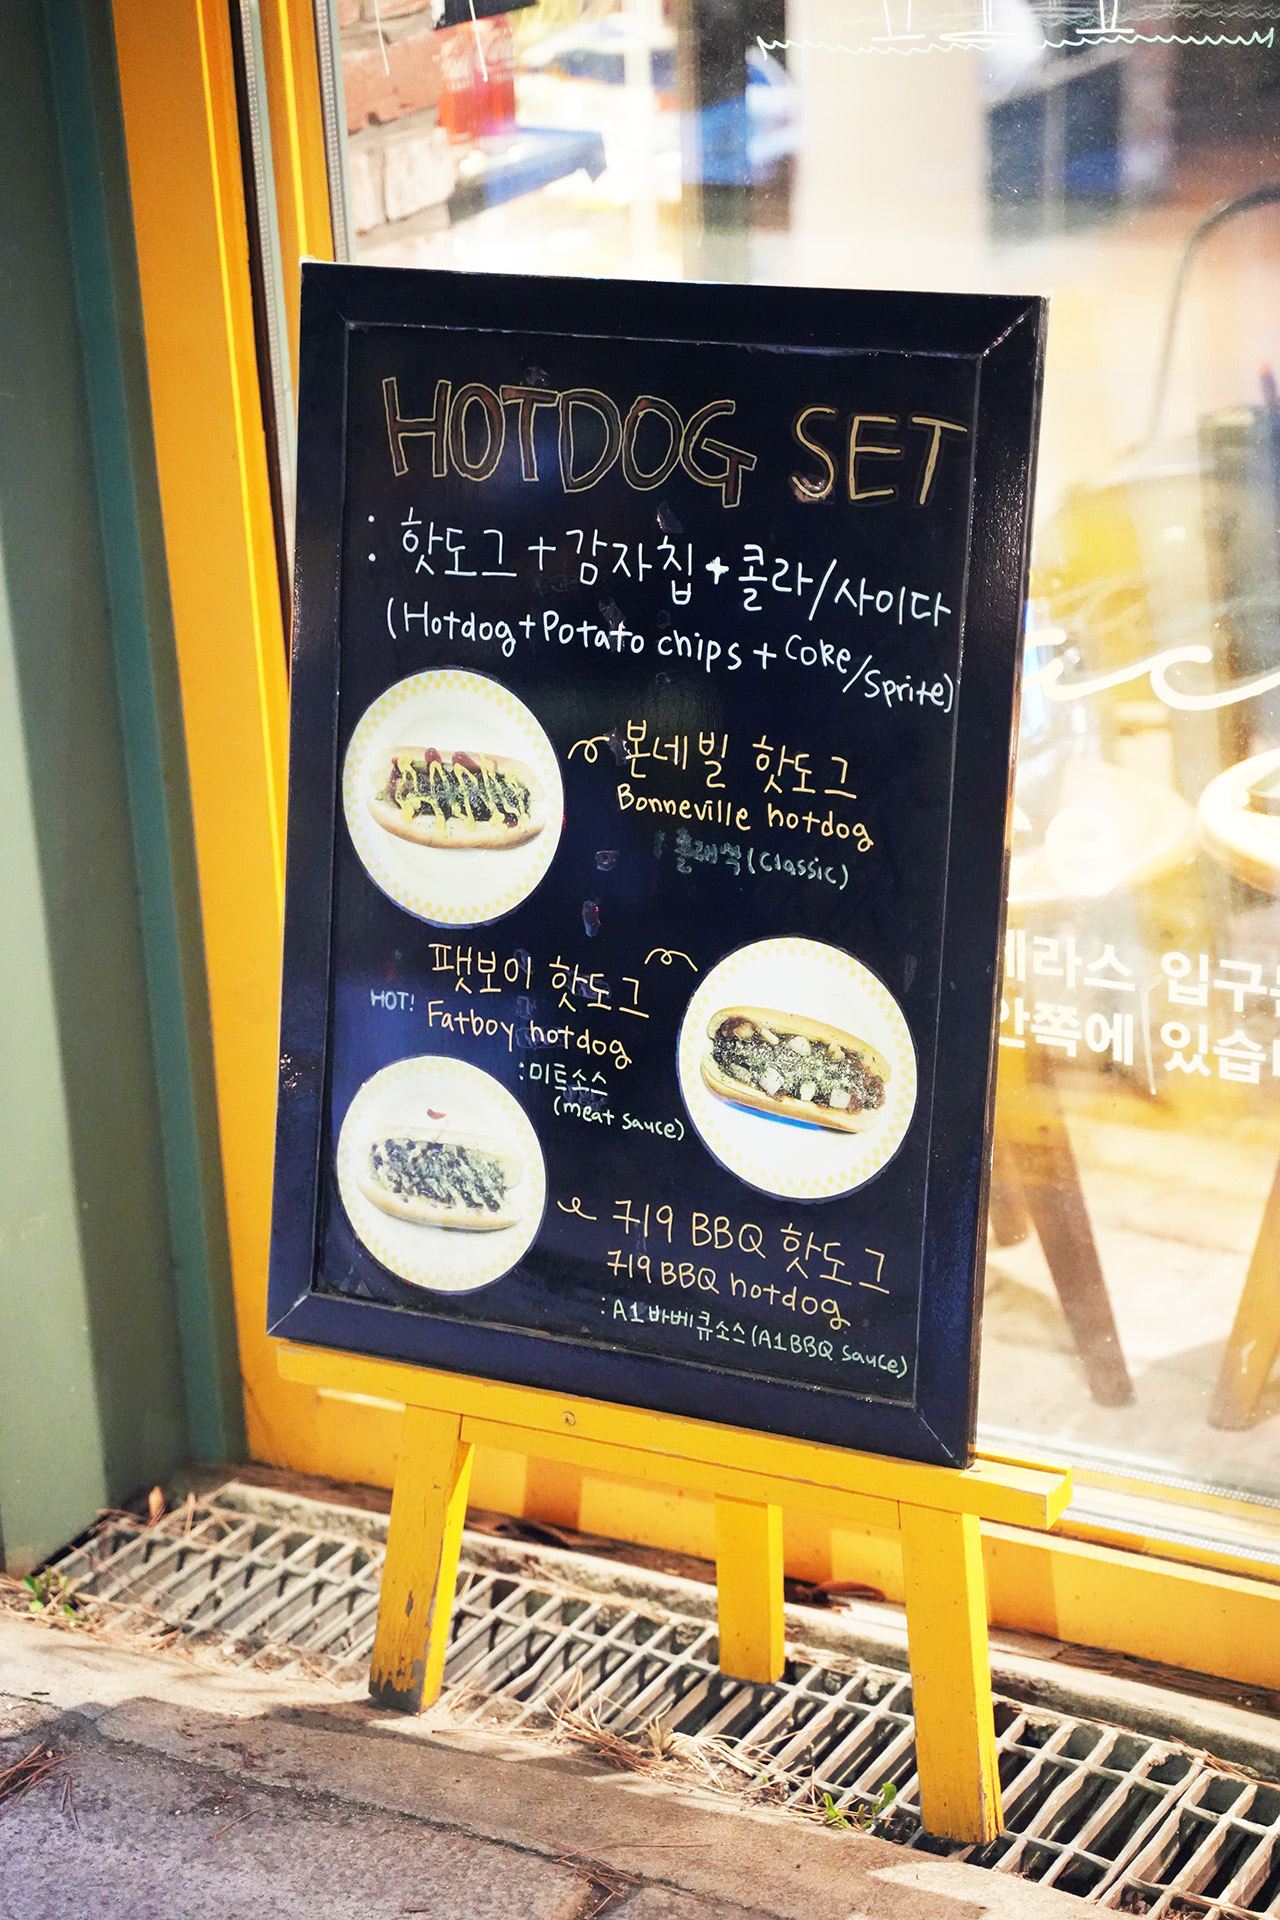 HOTDOG SET
: 핫도그 + 감자칩 + 콜라/사이다
(Hotdog + Potato chips + Coke/Sprite)
본네빌 핫도그
Bonneville hotdog
: 클래식 (Classic)
팻보이 핫도그
HOT! Fatboy hotdog
: 미트소스
(meat sauce)
719 BBQ 핫도그
719 BBQ hotdog
: A1 바베큐소스 (A1 BBQ sauce)
테라스 입구
안쪽에 있습